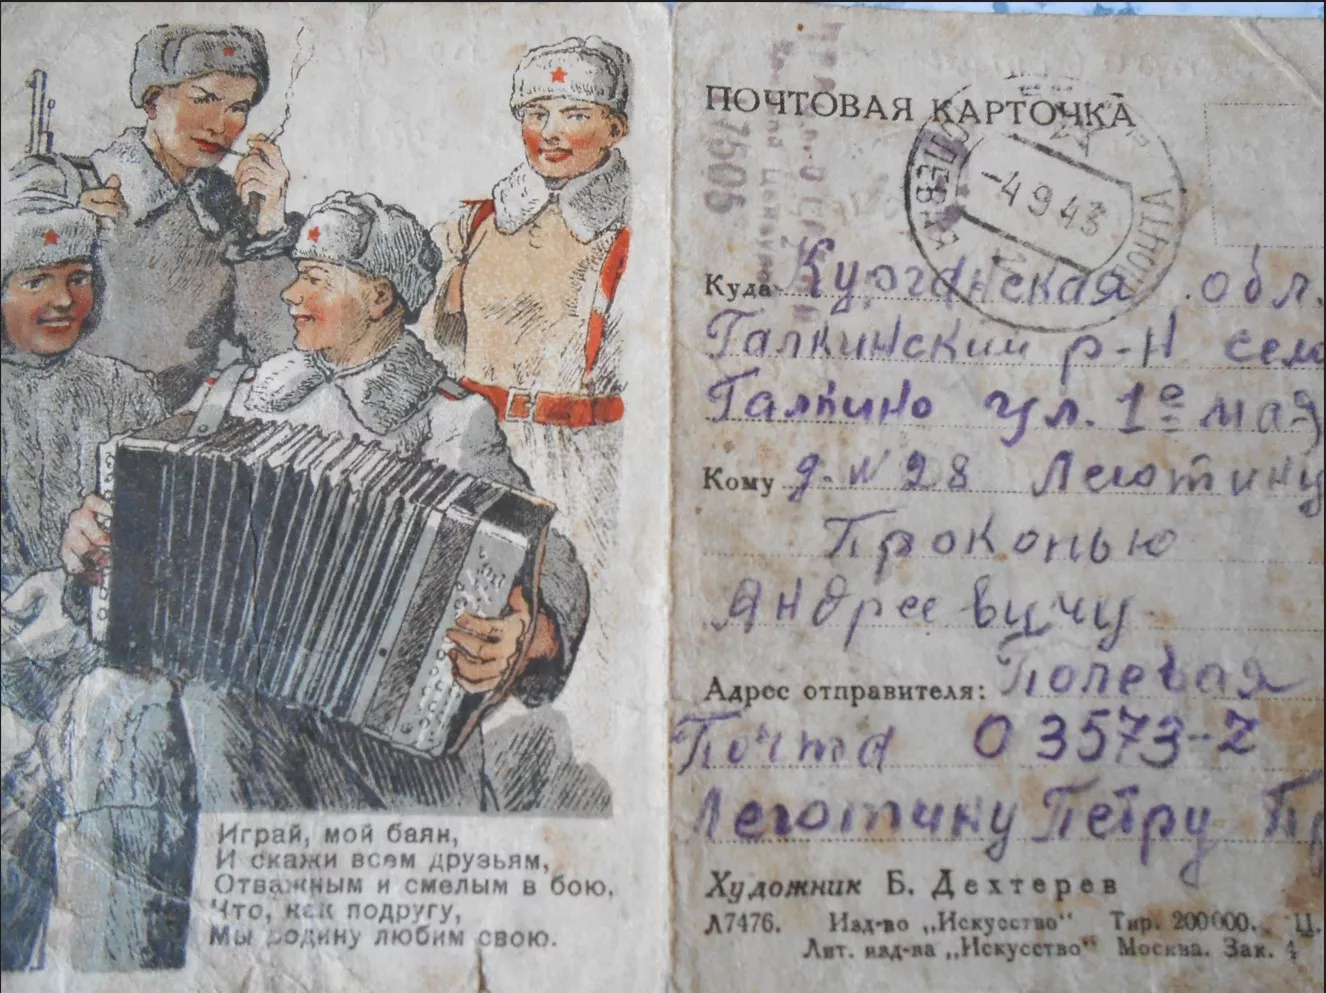 Играй, мой баян,
И скажи всем друзьям,
Отважным и смелым в бою,
Что, как подругу,
Мы родину любим свою.
ПОЧТОВАЯ КАРТОЧКА
7506
-4 9 43
ПОЧТА
Куда Курганская обл.
Галкинский р-н село
Галкино ул. 1е мая
Кому д. N 28 Леготину
Проконью
Андреевичу
Адрес отправителя: Полевая
Почта 03573-Z
Леготину Петру
Художник Б. Дехтерев
Л7476. Изд-во „Искусство" Тир. 200000. Ц.
Лит. изд-ва „Искусство" Москва. Зак. 4